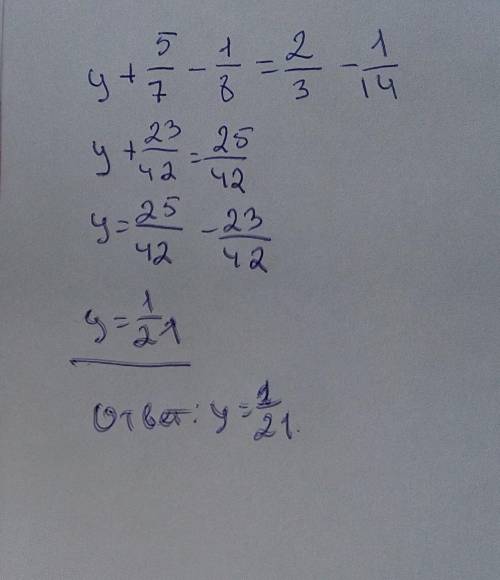 y + 5/7 - 1/6 = 2/3 - 1/14
y + 23/42 = 25/42
y = 25/42 - 23/42
y = 1/21
Ответ: y = 1/21.